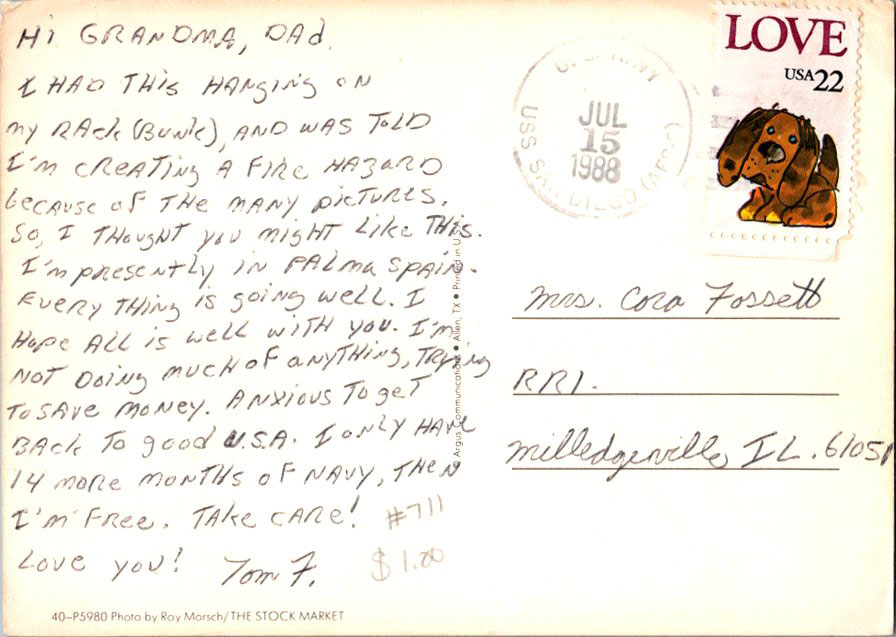 Hi GRANDMA, DAd.
I HAD THIS HANGING ON
my RAck (Bunk), AND WAS TOLD
I'm CREATING A FIRE HAZARD
because of THE MANY pictures.
So, I THOUGHT you might Like THIS.
I'm presently in PALMA SPAIN.
Every THING is going well. I
Hope ALL is well with you. I'm
NOT Doing much of anything, Trying
To SAVE MONEY. ANXIOUS To geT
BAck To good U.S.A. I only HAVE
14 more months of NAVY, THEN
I'm Free. TAke CARe!
Love you! Tom F.
#711
$1.00
40–P5980 Photo by Roy Morsch/THE STOCK MARKET
Argus Communications • Allen, TX • Printed in U.S.A.
U.S. NAVY
JUL
15
1988
USS SAN DIEGO (AFS-6)
LOVE
USA22
Mrs. Cora Fossett
RR1.
Milledgeville IL. 61051